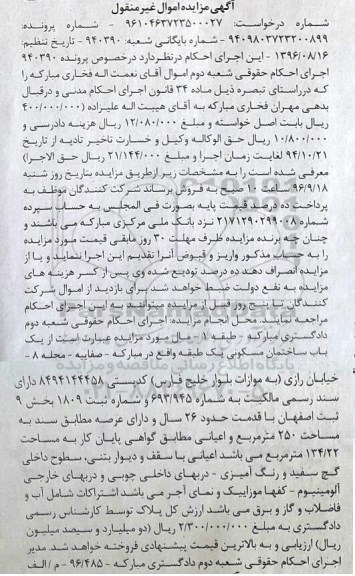 آگهی مزایده اموال غیر منقول
شماره درخواست: ۹۶۱۰۴۶۳۷۲۳۵۰۰۰۲۷ - شماره پرونده:
۹۴۰۹۹۸۰۳۷۲۳۲۰۰۸۹۹ - شماره بایگانی شعبه: ۹۴۰۳۹۰ - تاریخ تنظیم:
۱۳۹۶/۰۸/۱۶ - این اجرای احکام درنظردارد درخصوص پرونده ۹۴۰۳۹۰
اجرای احکام حقوقی شعبه دوم اموال آقای نعمت اله فخاری مبارکه را
که درراستای تبصره ذیل ماده ۳۴ قانون اجرای احکام مدنی و درقبال
بدهی مهران فخاری مبارکه به آقای هیبت اله علیزاده (۴۰۰/۰۰۰/۰۰۰
ریال بابت اصل خواسته و مبلغ ۱۲/۰۸۰/۰۰۰ ریال هزینه دادرسی و
۱۰/۸۰۰/۰۰۰ ریال حق الوکاله وکیل و خسارت تاخیر تادیه از تاریخ
۹۴/۱۰/۲۱ لغایت زمان اجرا و مبلغ ۲۱/۱۴۴/۰۰۰ ریال حق الاجرا)
معرفی شده است را به مشخصات زیر ازطریق مزایده بتاریخ روز شنبه
۹۶/۹/۱۸ ساعت ۱۰ صبح به فروش برساند شرکت کنندگان موظف به
پرداخت ده درصد قیمت پایه بصورت فی المجلس به حساب سپرده
شماره ۲۱۷۱۲۹۰۲۹۹۰۰۸ نزد بانک ملی مرکزی مبارکه می باشند و
چنان چه برنده مزایده ظرف مهلت ۳۰ روز مابقی قیمت مورد مزایده
را به حساب مذکور واریز و قبوض آنرا تقدیم این اجرا ننماید و یا از
مزایده انصراف دهد ده درصد تودیع شده وی پس از کسر هزینه های
مزایده به نفع دولت ضبط خواهد شد برای بازدید از اموال شرکت
کنندگان تا پنج روز قبل از مزایده میتوانند به این اجرای احکام
مراجعه نمایند. محل انجام مزایده: اجرای احکام حقوقی شعبه دوم
دادگستری مبارکه - طبقه ۱ - مال مورد مزایده عبارت است از یک
باب ساختمان مسکونی یک طبقه واقع در مبارکه - صفاییه - محله ۸ -
خیابان رازی (به موازات بلوار خلیج فارس) کدپستی ۸۴۹۴۱۴۴۴۵۸ دارای
سند رسمی مالکیت به شماره ۶۹۳/۹۴۵ و شماره ثبت ۱۸۰۹ بخش ۹
ثبت اصفهان با قدمت حدود ۲۶ سال و دارای عرصه مطابق سند به
مساحت ۲۵۰ مترمربع و اعیانی مطابق گواهی پایان کار به مساحت
۱۳۴/۲۲ مترمربع می باشد اعیانی با سقف و دیوار بتنی، سطوح داخلی
گچ سفید و رنگ آمیزی - دربهای داخلی چوبی و دربهای خارجی
آلومینیوم - کفها موزاییک و نمای آجر می باشد اشتراکات شامل آب و
فاضلاب و گاز و برق می باشد ارزش کل پلاک توسط کارشناس رسمی
دادگستری به مبلغ ۲/۳۰۰/۰۰۰/۰۰۰ ریال (دو میلیارد و سیصد میلیون
ریال) ارزیابی و به بالاترین قیمت پیشنهادی فروخته خواهد شد. مدیر
اجرای احکام حقوقی شعبه دوم دادگستری مبارکه - ۹۶/۴۸۵ - م / الف